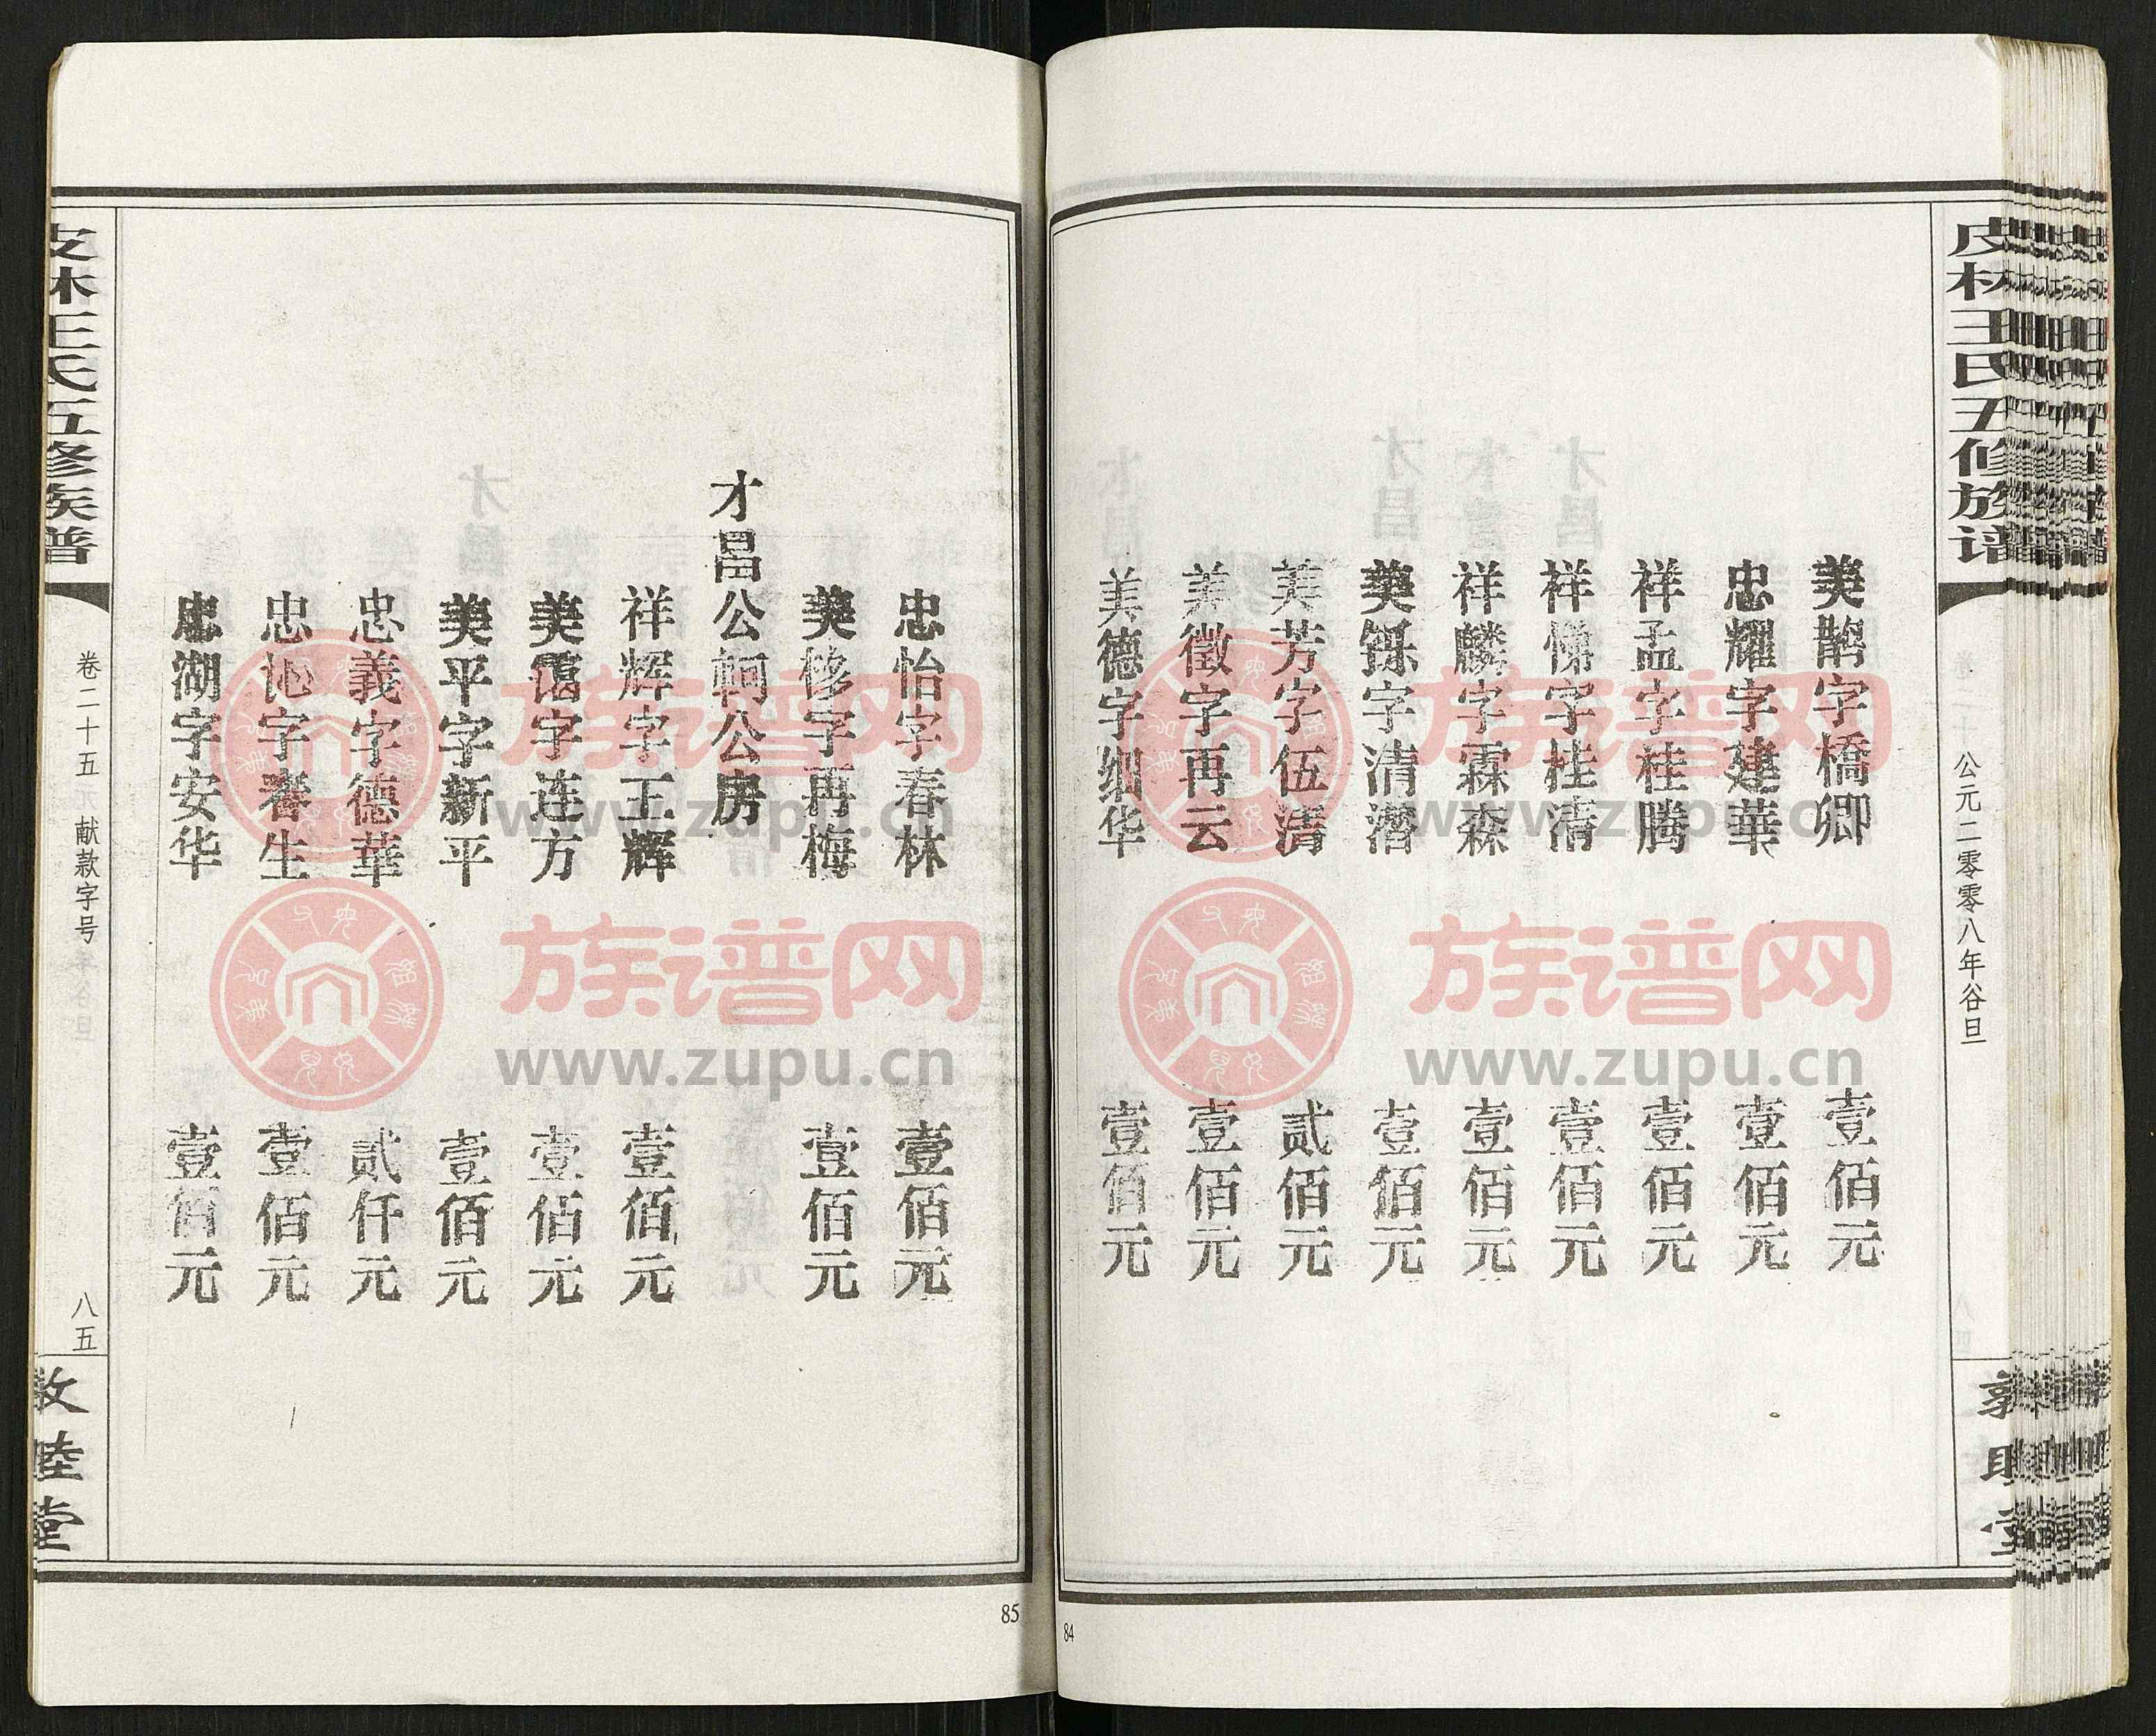 皮林王氏五修族谱
公元二零零八年谷旦
美鹊字橋卿 壹佰元
忠耀字建華 壹佰元
祥孟字桂腾 壹佰元
祥悌字桂清 壹佰元
祥麟字霖森 壹佰元
美铄字清潛 壹佰元
美芳字伍清 贰佰元
美徵字再云 壹佰元
美德字细华 壹佰元
84
忠怡字春林 壹佰元
美修字再梅 壹佰元
才昌公軻公房
祥辉字正辉 壹佰元
美字连方 壹佰元
美平字新平 壹佰元
忠義字德華 贰仟元
忠字春生 壹佰元
忠湖字安华 壹佰元
皮林王氏五修族谱
卷二十五 献款字号
八五
敦睦堂
85
族谱网
www.zupu.cn
族谱网
www.zupu.cn
族谱网
www.zupu.cn
族谱网
www.zupu.cn